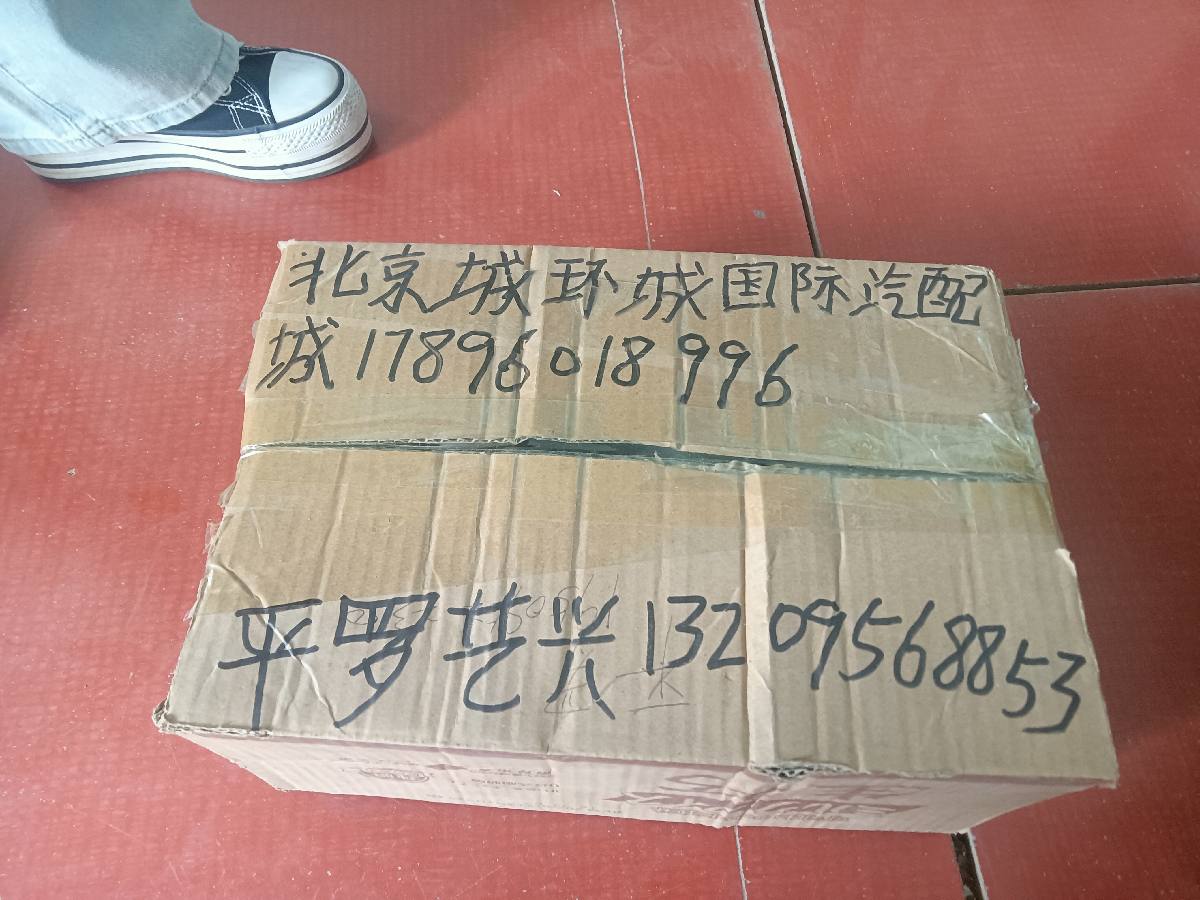 北京城环城国际汽配
城17896018996
平罗艺兴13209568853